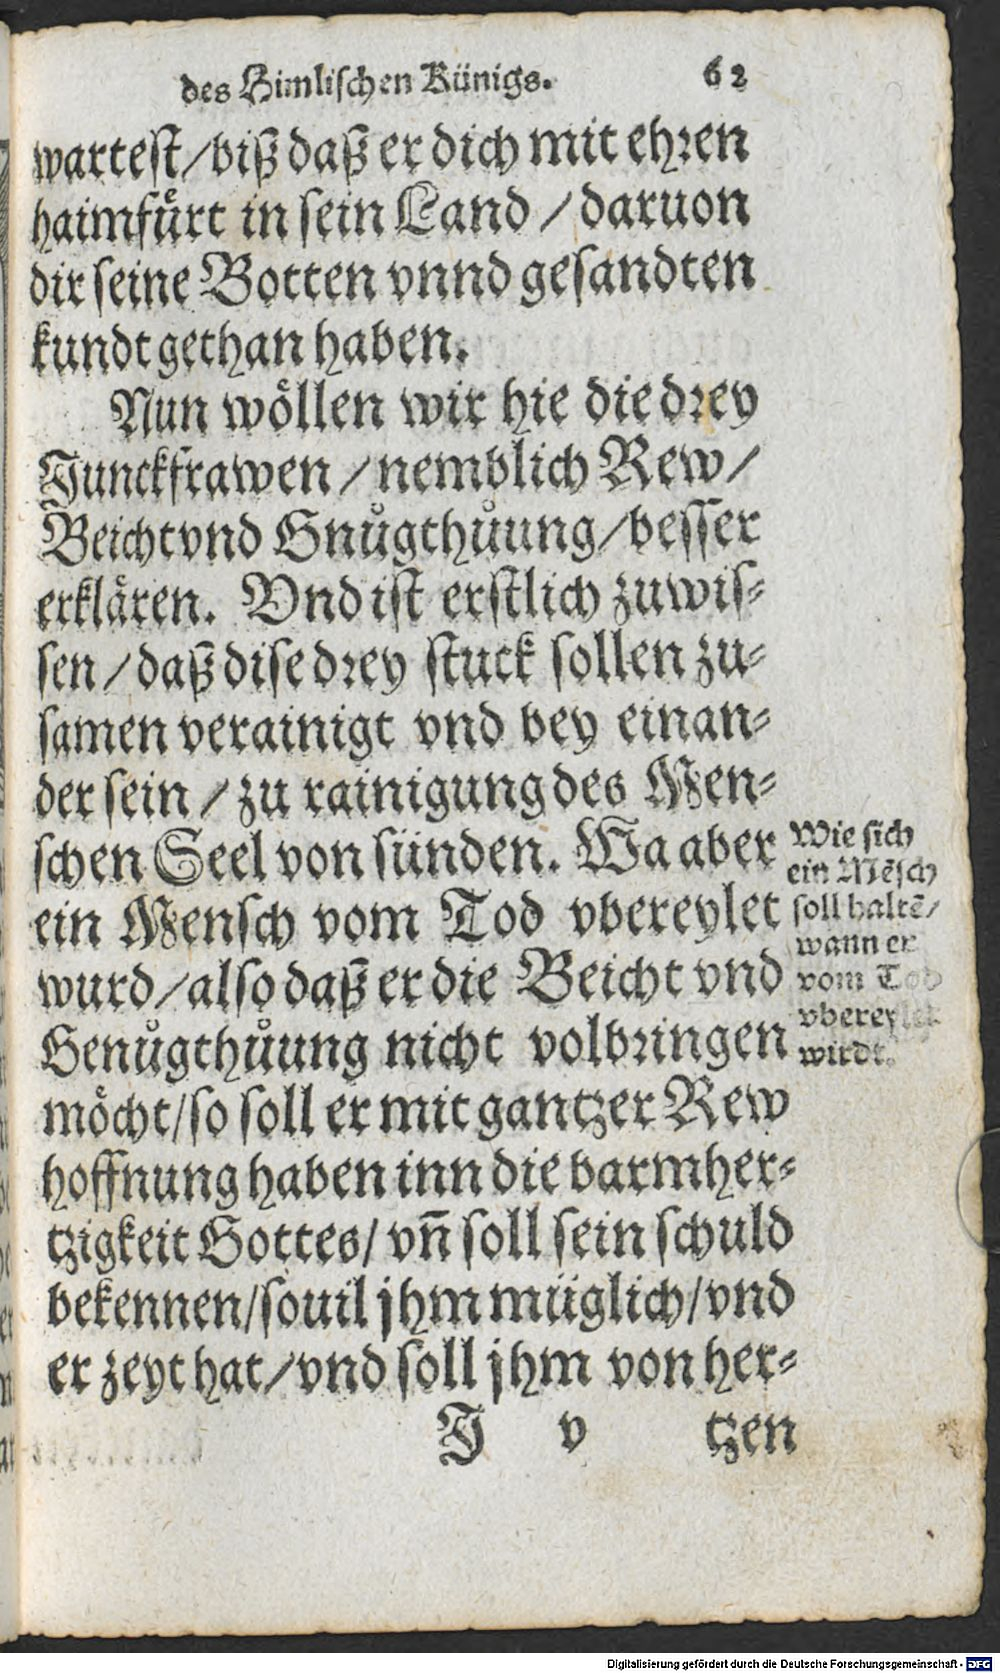 des Himlischen Künigs. 62
wartest / biß daß er dich mit ehren
haimfuͤrt in sein Land / daruon
dir seine Botten vnnd gesandten
kundt gethan haben.
Nun woͤllen wir hie die drey
Junckfrawen / nemblich Rew /
Beicht vnd Gnuͦgthuͦung / besser
erklaͤren. Vnd ist erstlich zuwis-
sen / daß dise drey stuck sollen zu-
samen verainigt vnd bey einan-
der sein / zu rainigung des Men-
schen Seel von sünden. Wa aber
ein Mensch vom Tod vbereylet
wurd / also daß er die Beicht vnd
Genuͦgthuͦung nicht volbringen
moͤcht / so soll er mit gantzer Rew
hoffnung haben inn die barmher-
tzigkeit Gottes / vñ soll sein schuld
bekennen / souil jhm müglich / vnd
er zeyt hat / vnd soll jhm von her-
J v tzen
Wie sich
ein Mẽsch
soll haltẽ /
wann er
vom Tod
vbereylet
wirdt.
Digitalisierung gefördert durch die Deutsche Forschungsgemeinschaft - DFG